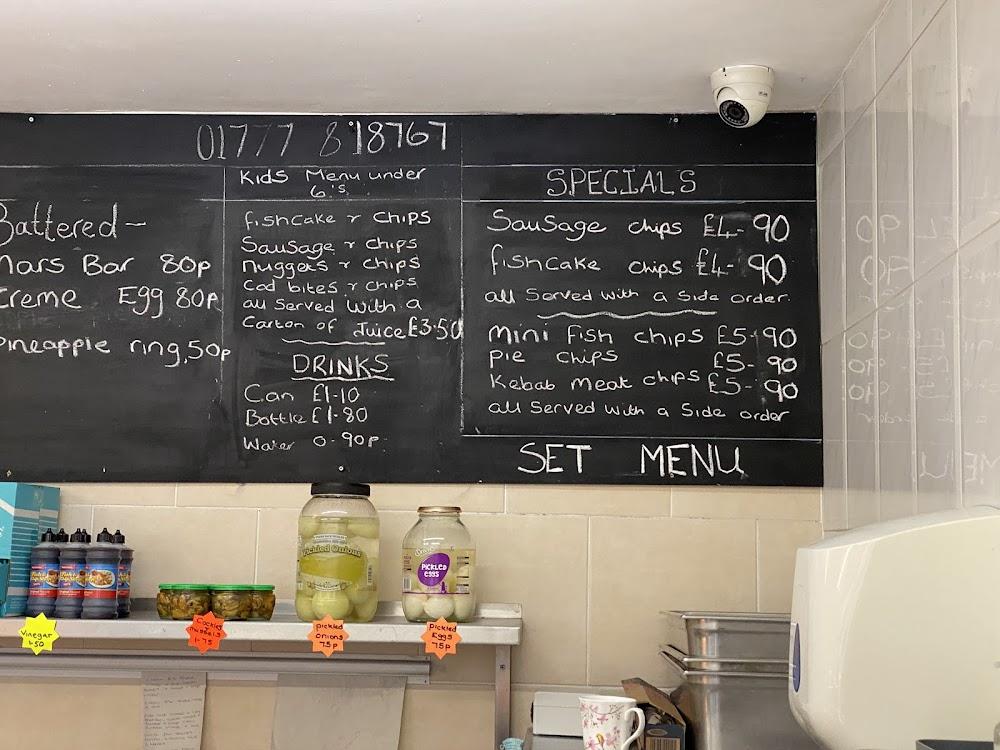 01777 818767
Battered -
Mars Bar 80p
Creme Egg 80p
Pineapple ring, 50p
Kids Menu under
6's.
fishcake & chips
Sausage & chips
nuggets & chips
cod bites & chips
all served with a
Carton of Juice £3.50
DRINKS
Can £1-10
Bottle £1-80
Water 0-90p
SPECIALS
Sausage chips £4-90
fishcake chips £4-90
all Served with a Side order.
Mini Fish chips £5-90
pie chips £5-90
Kebab meat chips £5-90
all Served with a Side order
SET MENU
Pickled Onions
PICKLED
EGGS
Vinegar
1-50
Cockles
mussels
1-75
pickled
onions
75p
pickled
Eggs
75p